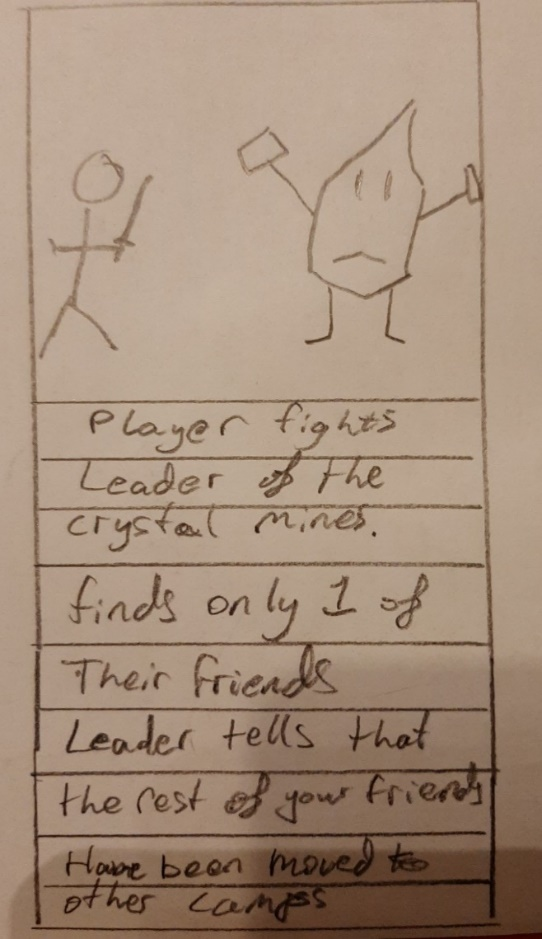 Player fights
Leader of the
crystal mines.
finds only 1 of
Their friends
Leader tells that
the rest of your friends
Have been moved to
other camps